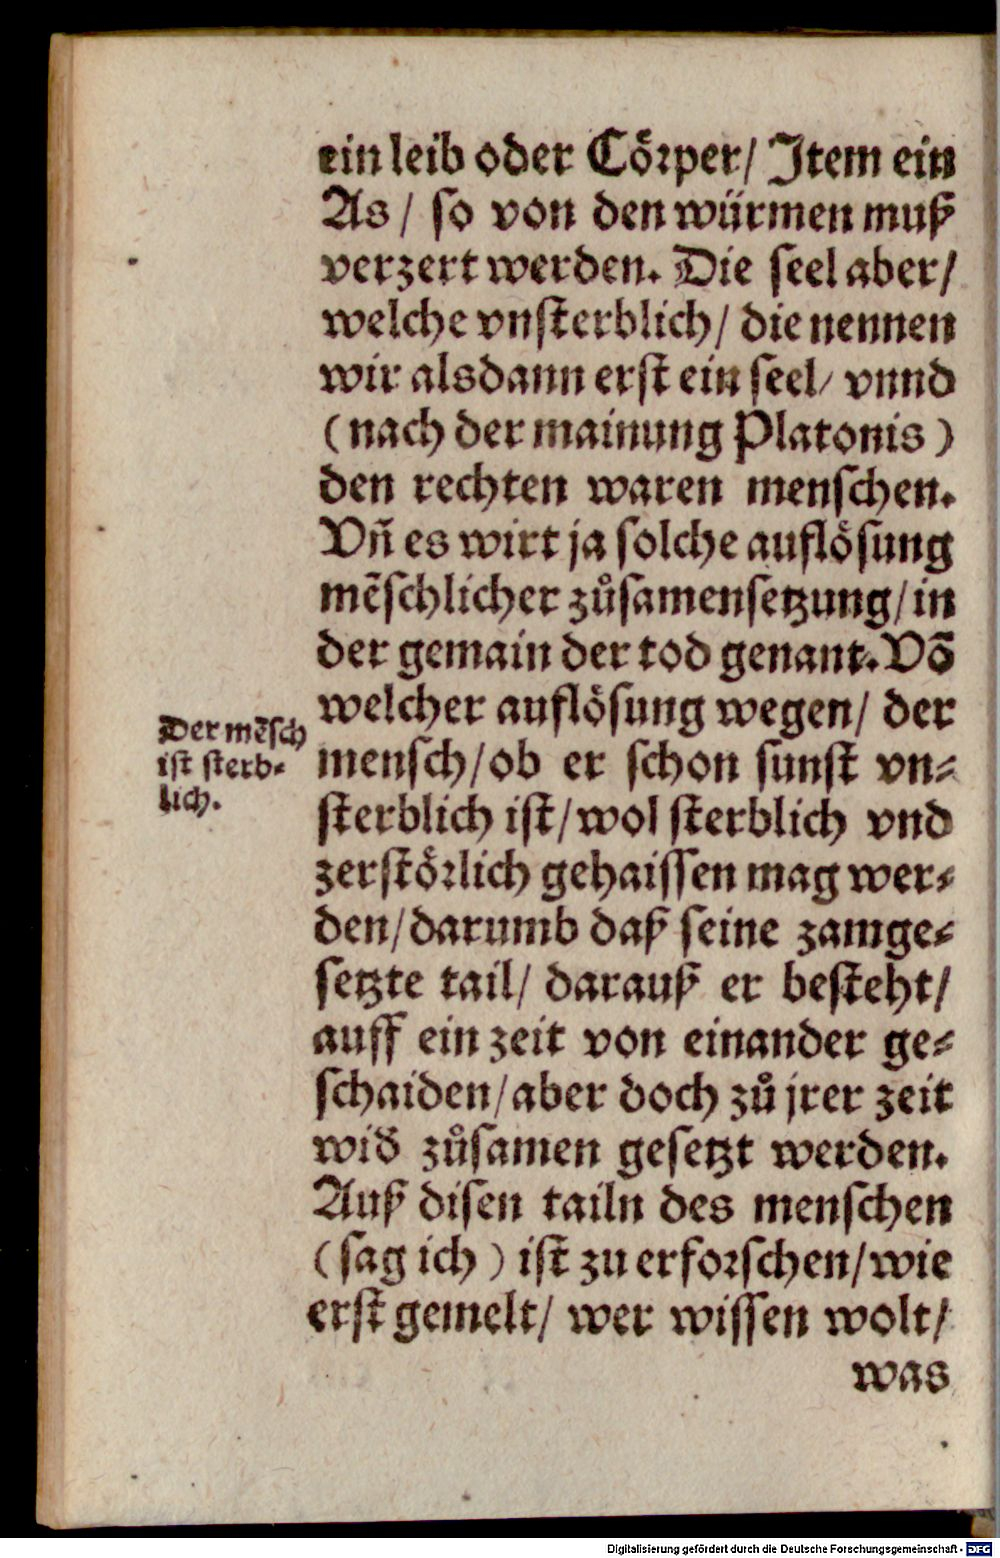 ein leib oder Cörper/ Item ein
As/ so von den würmen muß
verzert werden. Die seel aber/
welche vnsterblich/ die nennen
wir alsdann erst ein seel/ vnnd
(nach der mainung Platonis)
den rechten waren menschen.
Vñ es wirt ja solche auflösung
mẽschlicher zůsamensetzung/ in
der gemain der tod genant. Võ
welcher auflösung wegen/ der
Der mẽsch
ist sterb-
lich.
mensch/ ob er schon sunst vn-
sterblich ist/ wol sterblich vnd
zerstörlich gehaissen mag wer-
den/ darumb daß seine zamge-
setzte tail/ darauß er besteht/
auff ein zeit von einander ge-
schaiden/ aber doch zů jrer zeit
wid̃ zůsamen gesetzt werden.
Auß disen tailn des menschen
(sag ich) ist zu erforschen/ wie
erst gemelt/ wer wissen wolt/
was
Digitalisierung gefördert durch die Deutsche Forschungsgemeinschaft - DFG